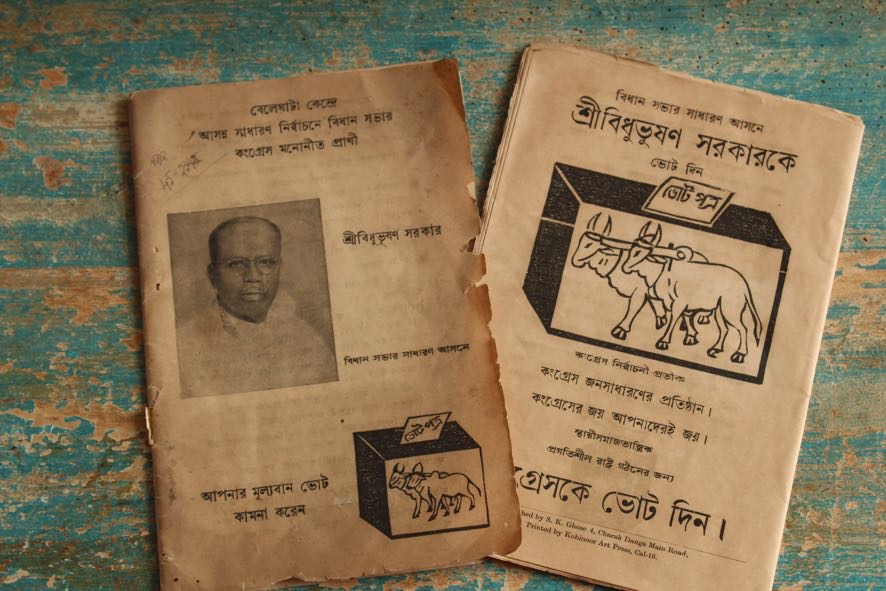 বেলেঘাটা কেন্দ্রে
আসন্ন সাধারণ নির্বাচনে বিধান সভার
কংগ্রেস মনোনীত প্রার্থী
শ্রীবিধুভুষণ সরকার
বিধান সভার সাধারণ আসনে
ভোট পত্র
আপনার মূল্যবান ভোট
কামনা করেন
বিধান সভার সাধারণ আসনে
শ্রীবিধুভুষণ সরকারকে
ভোট দিন
ভোট পত্র
কংগ্রেস নির্বাচনী প্রতীক
কংগ্রেস জনসাধারণের প্রতিষ্ঠান।
কংগ্রেসের জয় আপনাদেরই জয়।
প্রগতিশীল রাষ্ট্র গঠনের জন্য
গ্রেসকে ভোট দিন।
hed by S. K. Ghose 4, Charak Danga Main Road,
Printed by Kohinoor Art Press, Cal-16.